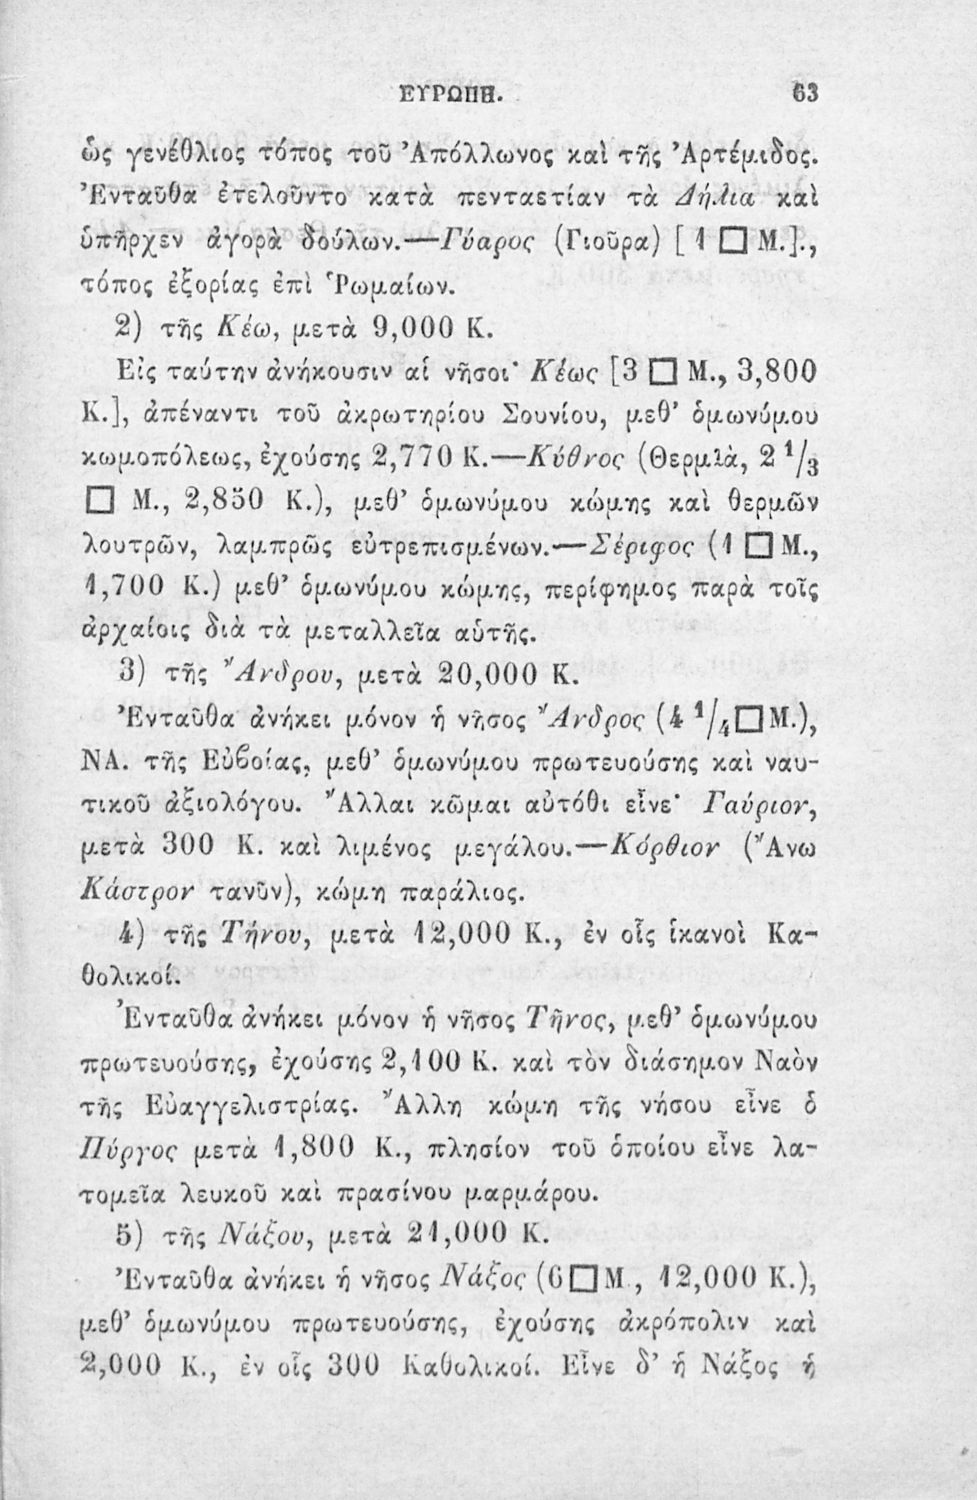 ΕΥΡΩΠΗ. 63
ὡς γενέθλιος τόπος τοῦ Ἀπόλλωνος καὶ τῆς Ἀρτέμιδος.
Ἐνταῦθα ἐτελοῦντο κατὰ πενταετίαν τὰ Δήλια καὶ
ὑπῆρχεν ἀγορὰ δούλων.—Γύαρος (Γιοῦρα) [1 □ Μ.].,
τόπος ἐξορίας ἐπὶ Ῥωμαίων.
2) τῆς Κέω, μετὰ 9,000 Κ.
Εἰς ταύτην ἀνήκουσιν αἱ νῆσοι· Κέως [3 □ Μ., 3,800
Κ.], ἀπέναντι τοῦ ἀκρωτηρίου Σουνίου, μεθ’ ὁμωνύμου
κωμοπόλεως, ἐχούσης 2,770 Κ.—Κύθνος (Θερμιὰ, 2 1/3
□ Μ., 2,850 Κ.), μεθ’ ὁμωνύμου κώμης καὶ θερμῶν
λουτρῶν, λαμπρῶς εὐτρεπισμένων.—Σέριφος (1 □ Μ.,
1,700 Κ.) μεθ’ ὁμωνύμου κώμης, περίφημος παρὰ τοῖς
ἀρχαίοις διὰ τὰ μεταλλεῖα αὑτῆς.
3) τῆς Ἄνδρου, μετὰ 20,000 Κ.
Ἐνταῦθα ἀνήκει μόνον ἡ νῆσος Ἄνδρος (4 1/4 □ Μ.),
ΝΑ. τῆς Εὐβοίας, μεθ’ ὁμωνύμου πρωτευούσης καὶ ναυ-
τικοῦ ἀξιολόγου. Ἄλλαι κῶμαι αὐτόθι εἶνε· Γαύριον,
μετὰ 300 Κ. καὶ λιμένος μεγάλου.—Κόρθιον (Ἄνω
Κάστρον τανῦν), κώμη παράλιος.
4) τῆς Τήνου, μετὰ 12,000 Κ., ἐν οἷς ἱκανοὶ Κα-
θολικοί.
Ἐνταῦθα ἀνήκει μόνον ἡ νῆσος Τῆνος, μεθ’ ὁμωνύμου
πρωτευούσης, ἐχούσης 2,100 Κ. καὶ τὸν διάσημον Ναὸν
τῆς Εὐαγγελιστρίας. Ἄλλη κώμη τῆς νήσου εἶνε ὁ
Πύργος μετὰ 1,800 Κ., πλησίον τοῦ ὁποίου εἶνε λα-
τομεῖα λευκοῦ καὶ πρασίνου μαρμάρου.
5) τῆς Νάξου, μετὰ 21,000 Κ.
Ἐνταῦθα ἀνήκει ἡ νῆσος Νάξος (6 □ Μ., 12,000 Κ.),
μεθ’ ὁμωνύμου πρωτευούσης, ἐχούσης ἀκρόπολιν καὶ
2,000 Κ., ἐν οἷς 300 Καθολικοί. Εἶνε δ’ ἡ Νάξος ἡ